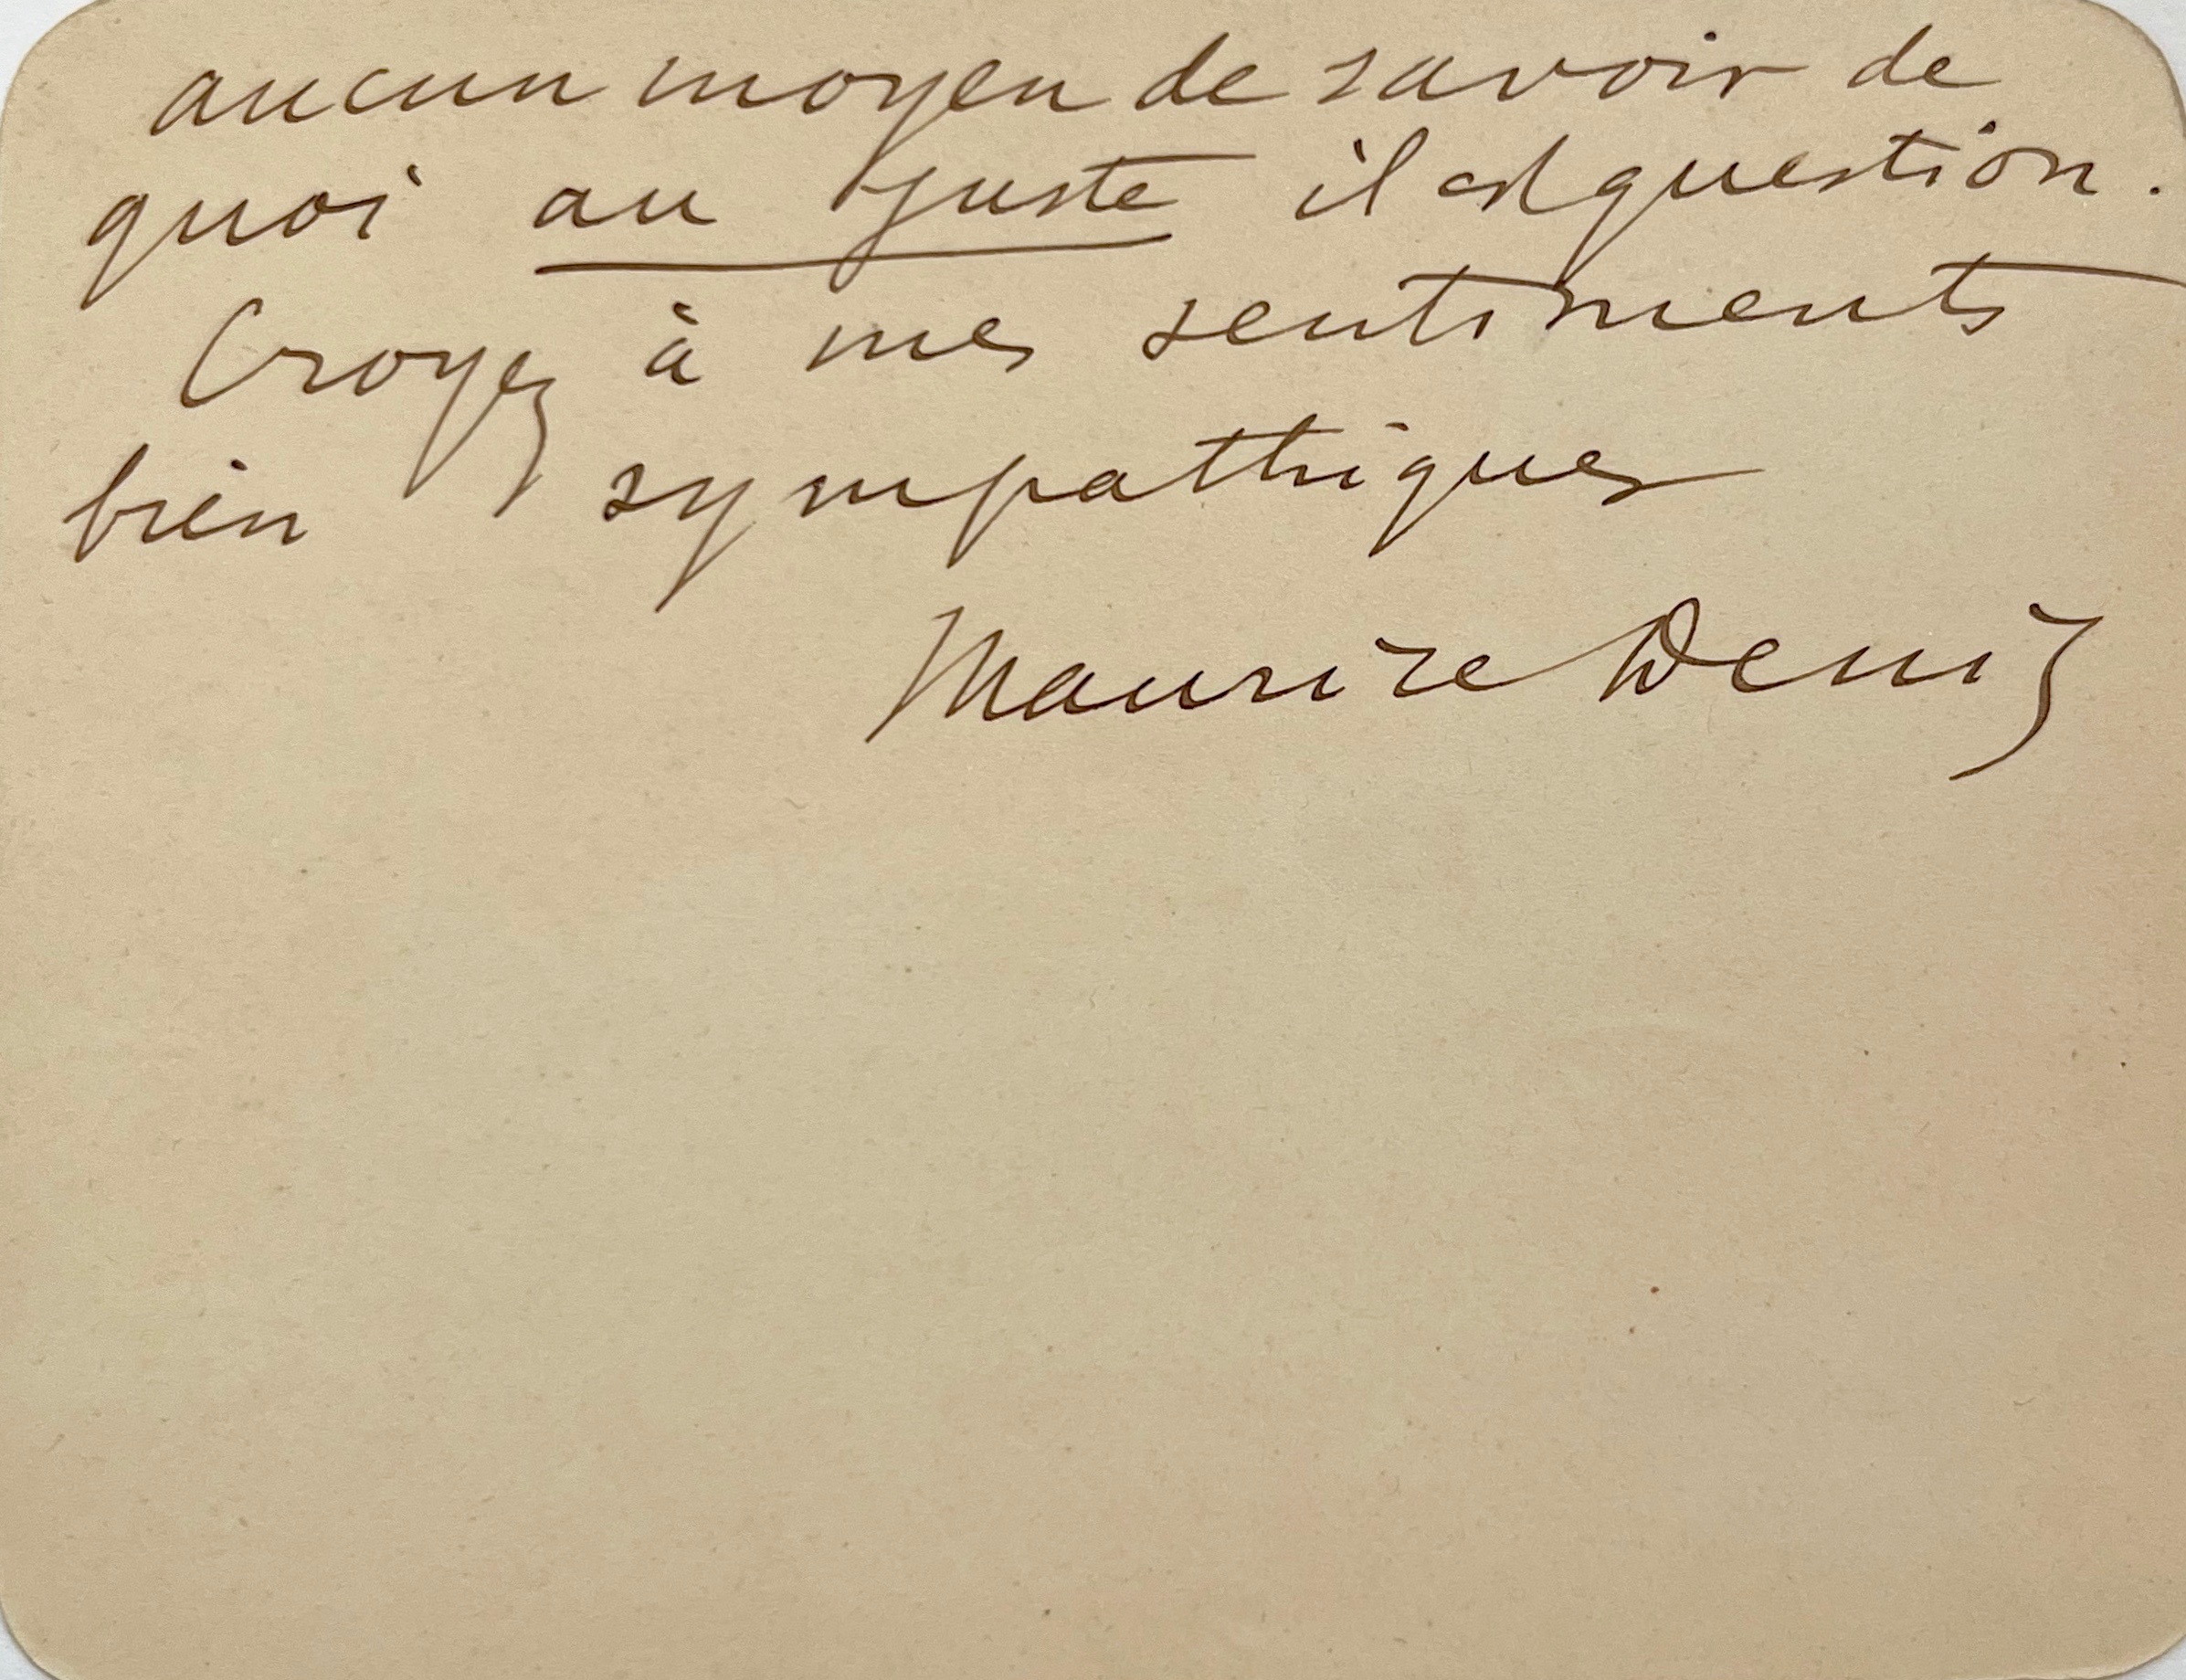 aucun moyen de savoir de
quoi au juste il est question.
Croyez à mes sentiments
bien sympathiques
Maurice Denis